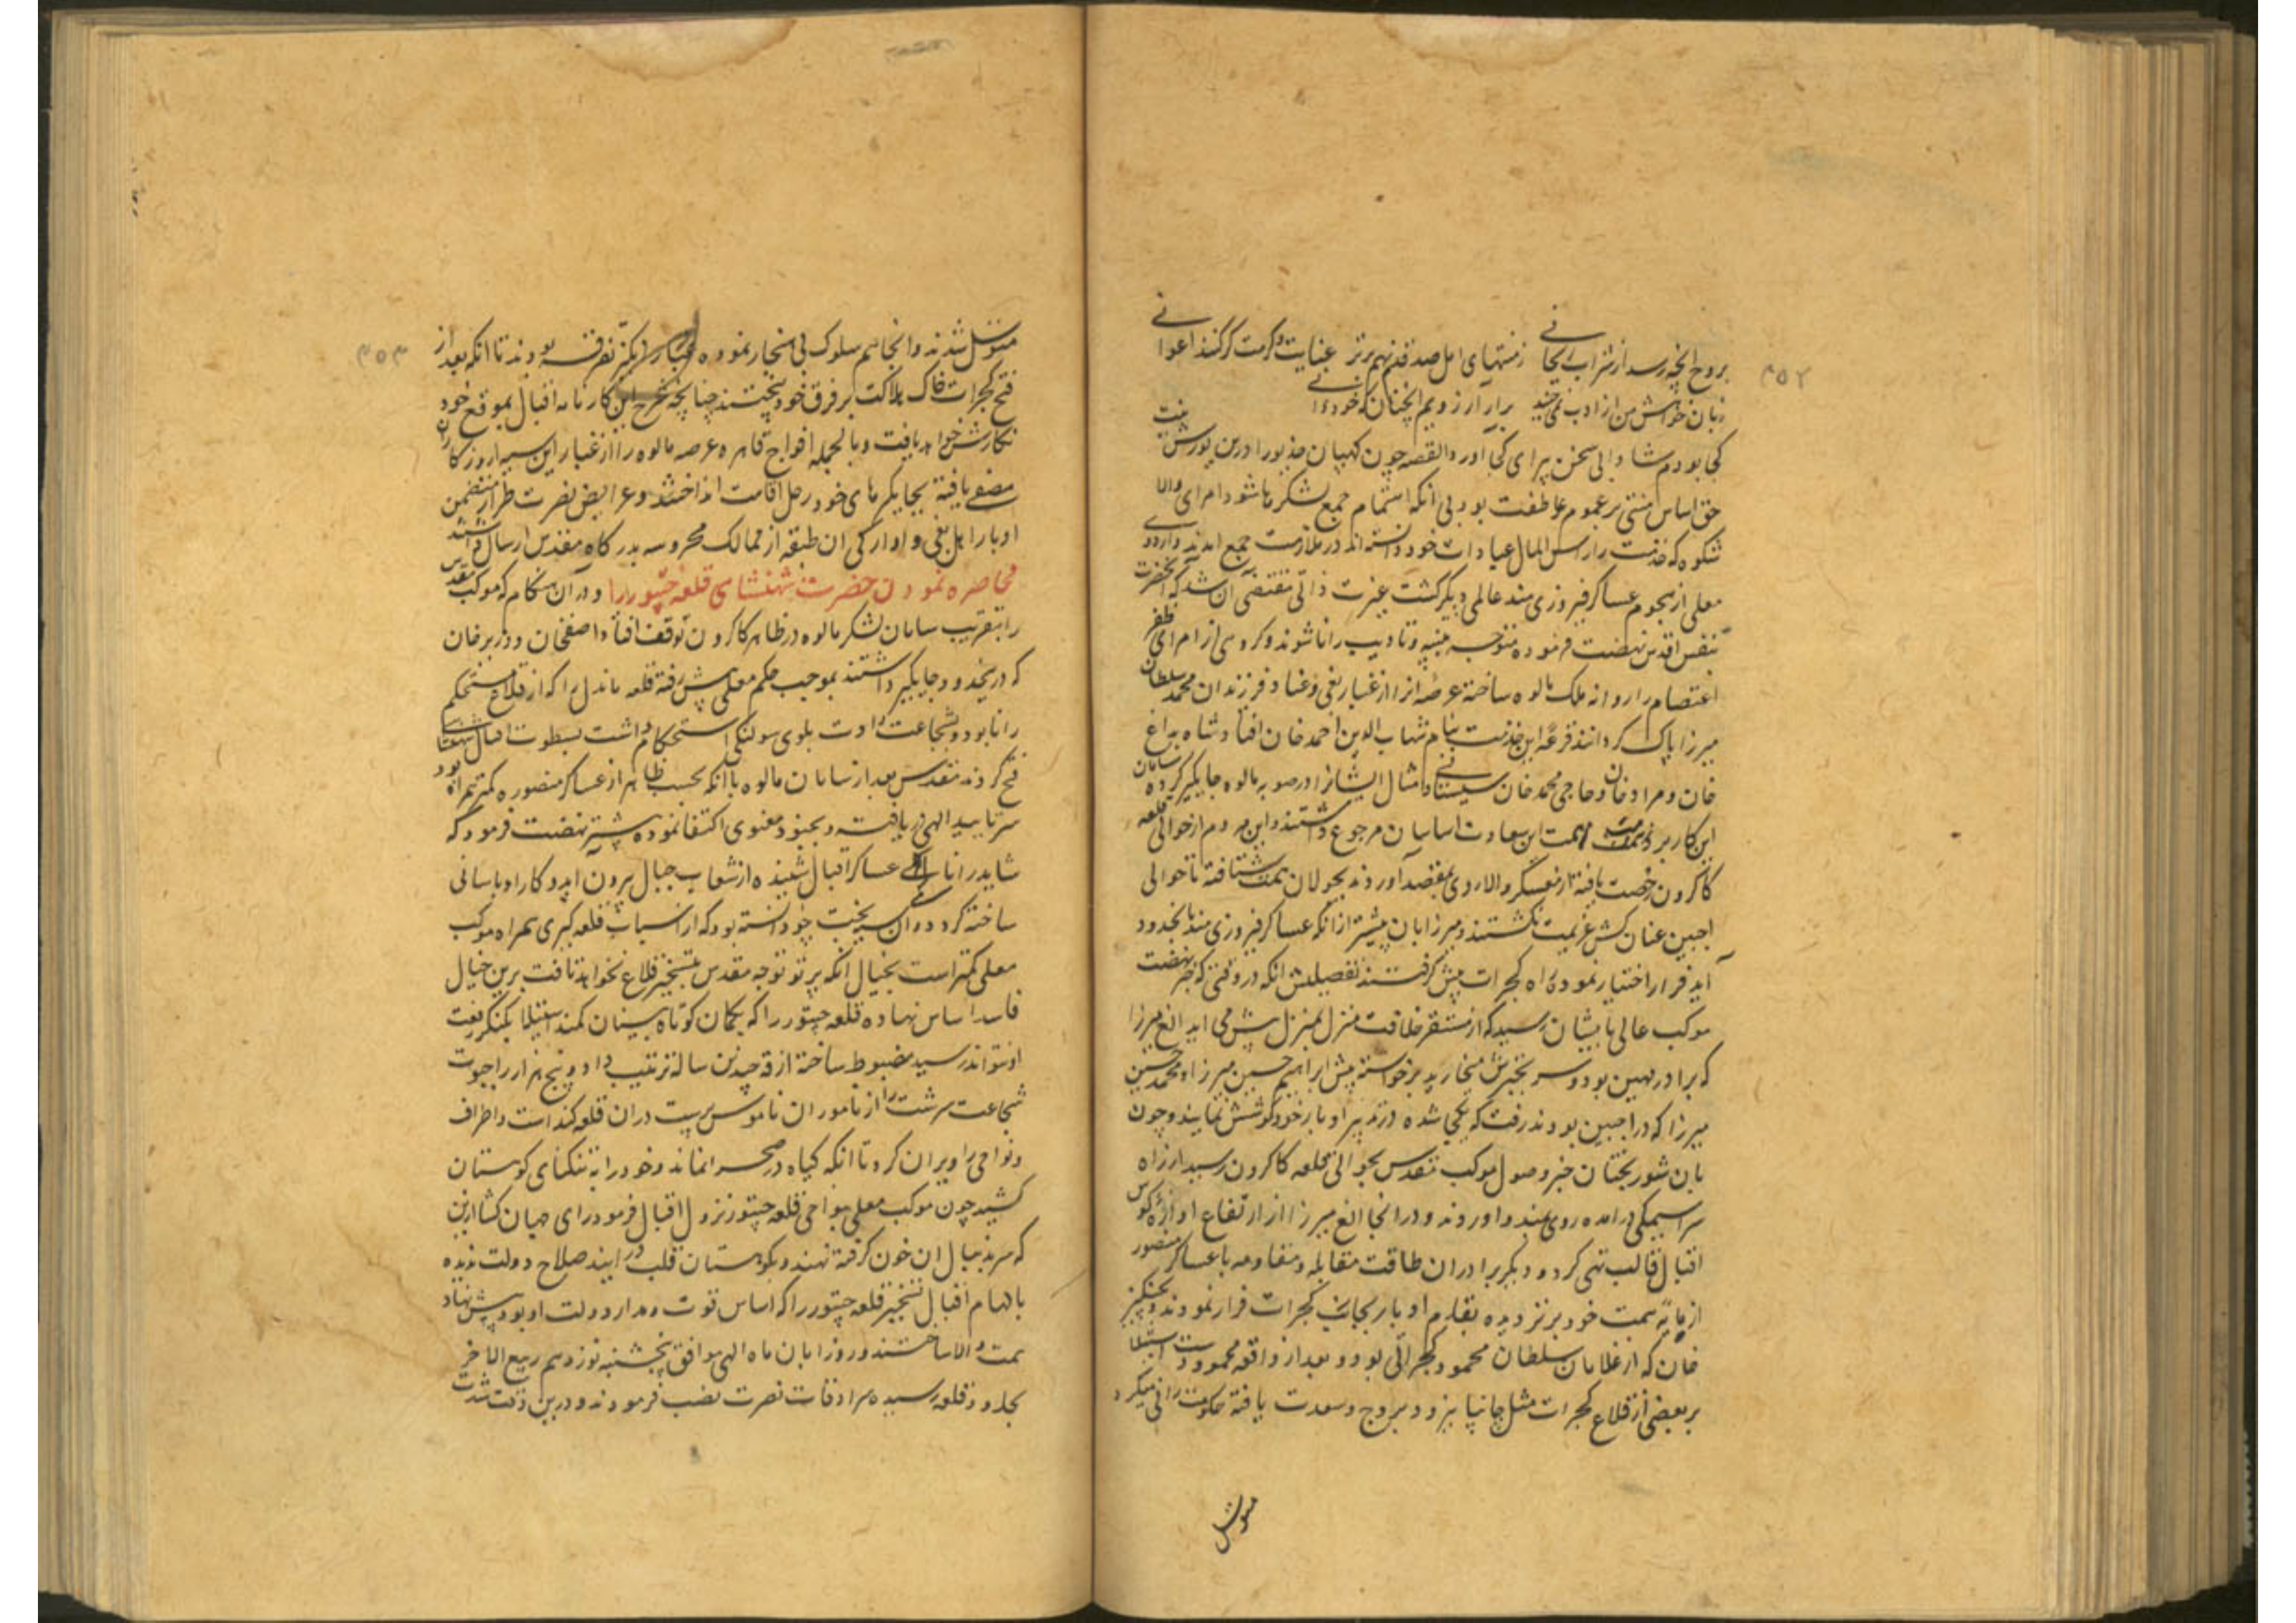 ۴۵۲
بروح انچه رسد از شراب ریحانی زمنتهای امل صد قدم نهم برتر عنایت و کرمت گر کند اعوانی
زبان خواهش من از ادب نمی جنبد برار ارزویم انچنان که خود دانی
کجا بودم شادابی سخن بر ای کجا اورد القصه چون کیهان خدیو را درین یورش نیت
حق اساس مبتنی بر عموم عاطفت بود بی انکه اهتمام جمع لشکرها شود امرای والا
شکوه که خدمت را راس المال عبادات خود دانسته اند در ملازمت جمع امدند و اردوی
معلی از هجوم عساکر فیروزی مند عالمی دیگر گشت غیرت ذاتی مقتضی آن شد که انحضرت
بنفس اقدس نهضت فرموده متوجه تنبیه و تادیب رانا شوند و گروهی از امرای ظفر
اعتصام را روانه ملک مالوه ساخته عرصه انرا از غبار بغی و عناد فرزندان محمد سلطان
میرزا پاک گردانند قرعه این خدمت بنام شهاب الدین احمد خان افتاد شاه بداغ
خان و مراد خان و حاجی محمد خان سیستانی و امثال ایشانرا در صوبه مالوه جایگیر کرده سامان
این کار بر ذمت همت این سعادت اساسان مرجوع داشتند و این مردم از حوالی قلعه
کاکرون رخصت یافته از معسکر والا روی بمقصد آوردند بجولان همت شتافته تا حوالی
اجین عنان کش عزیمت نگشتند و میرزایان پیشتر از انکه عساکر فیروزی مند بانحدود
آید فرار اختیار نموده راه گجرات پیش گرفتند تفصیلش انکه در وقتی که خبر نهضت
موکب عالی بایشان رسید که از مستقر خلافت منزل بمنزل پیش می اید الغ میرزا
که برادر مهین بود و سر بخیرش میخارید برخواسته پیش ابراهیم حسین میرزا و محمد حسین
میرزا که در اجین بودند رفت که یکجا شده در تدبیر ادبار خود کوشش نمایند و چون
باین شوربختان خبر وصول موکب مقدس بحوالی قلعه کاکرون رسید از راه
سراسیمگی در امده روی بمندو اوردند و در انجا الغ میرزا از ارتفاع اوازه کوس
اقبال قالب تهی کرد و دیگر برادران طاقت مقابله و مقاومه با عساکر منصور
از پایه همت خود برتر دیده بقلاوزی ادبار بجانب گجرات فرار نمودند و چنگیز
خان که از غلامان سلطان محمود گجراتی بود و بعد از واقعه محمود دست استیلا
بر بعضی از قلاع گجرات مثل چانپانیر و بروج و سورت یافته حکومت رانی میکرد
متوسل
۴۵۳
متوسل شدند و انجا هم سلوک بی هنجار نموده غبار انگیز تفرقه بودند تا انکه بعد از
فتح گجرات خاک هلاکت بر فرق خود بیختند چنانچه شرح این کارنامه اقبال بموقع خود
نگارش خواهد یافت و بالجمله افواج قاهره عرصه مالوه را از غبار این سیه روزگاران
مصفی یافته بجایگیرهای خود رحل اقامت انداختند و عرایض نصرت طراز متضمن
ادبار اهل بغی و اوارگی ان طبقه از ممالک محروسه بدرگاه مقدس ارسال داشتند
محاصره نمودن حضرت شهنشاهی قلعه چیتور را و در آن هنگام که موکب مقدس
را بتقریب سامان لشکر مالوه در ظاهر کاکرون توقف افتاد اصفخان و وزیر خان
که در ینحدود جایگیر داشتند بموجب حکم معلی پیش رفته قلعه ماندل را که از قلاع مستحکم
رانا بود و بشجاعت راوت بلوی سولنکی استحکام داشت بسطوت اقبال شهنشاهی
فتح کردند مقدس بعد از سامان مالوه با انکه بحسب ظاهر از عساکر منصوره کمتر همراه بود
سر تایید الهی دریافته و بجنود معنوی اکتفا نموده پیشتر نهضت فرمود که
شاید رانا عساکر اقبال شنیده از شعاب جبال بیرون اید و کار او باسانی
ساخته گردد و آن سیه بخت چو دانسته بود که از اسباب قلعه گیری همراه موکب
معلی کمتر است بخیال انکه پرتو توجه مقدس بتسخیر قلاع نخواهد تافت برین خیال
فاسد اساس نهاده قلعه چیتور را که بگمان کوتاه بینان کمند استیلا بکنگر رفعت
او نتواند رسید مضبوط ساخته اذوقه چندین ساله ترتیب داد و پنج هزار راجپوت
شجاعت سرشت را از ناموران ناموس پرست دران قلعه گذاشت و اطراف
و نواحی را ویران کرد تا انکه گیاه در صحرا نماند و خود را به تنگنای کوهستان
کشید چون موکب معلی بنواحی قلعه چیتور نزول اقبال فرمود رای جهان کشا ازین
که سر بدنبال ان خون گرفته نهند و بکوهستان قلب در ایند صلاح دولت ندیده
بالهام اقبال تسخیر قلعه چیتور را که اساس قوت و مدار دولت او بود پیش نهاد
همت والا ساختند و روز ابان ماه الهی موافق پنجشنبه نوزدهم ربیع الاخر
بحدود قلعه رسیده سرادقات نصرت نصب فرمودند و درین وقت شدت